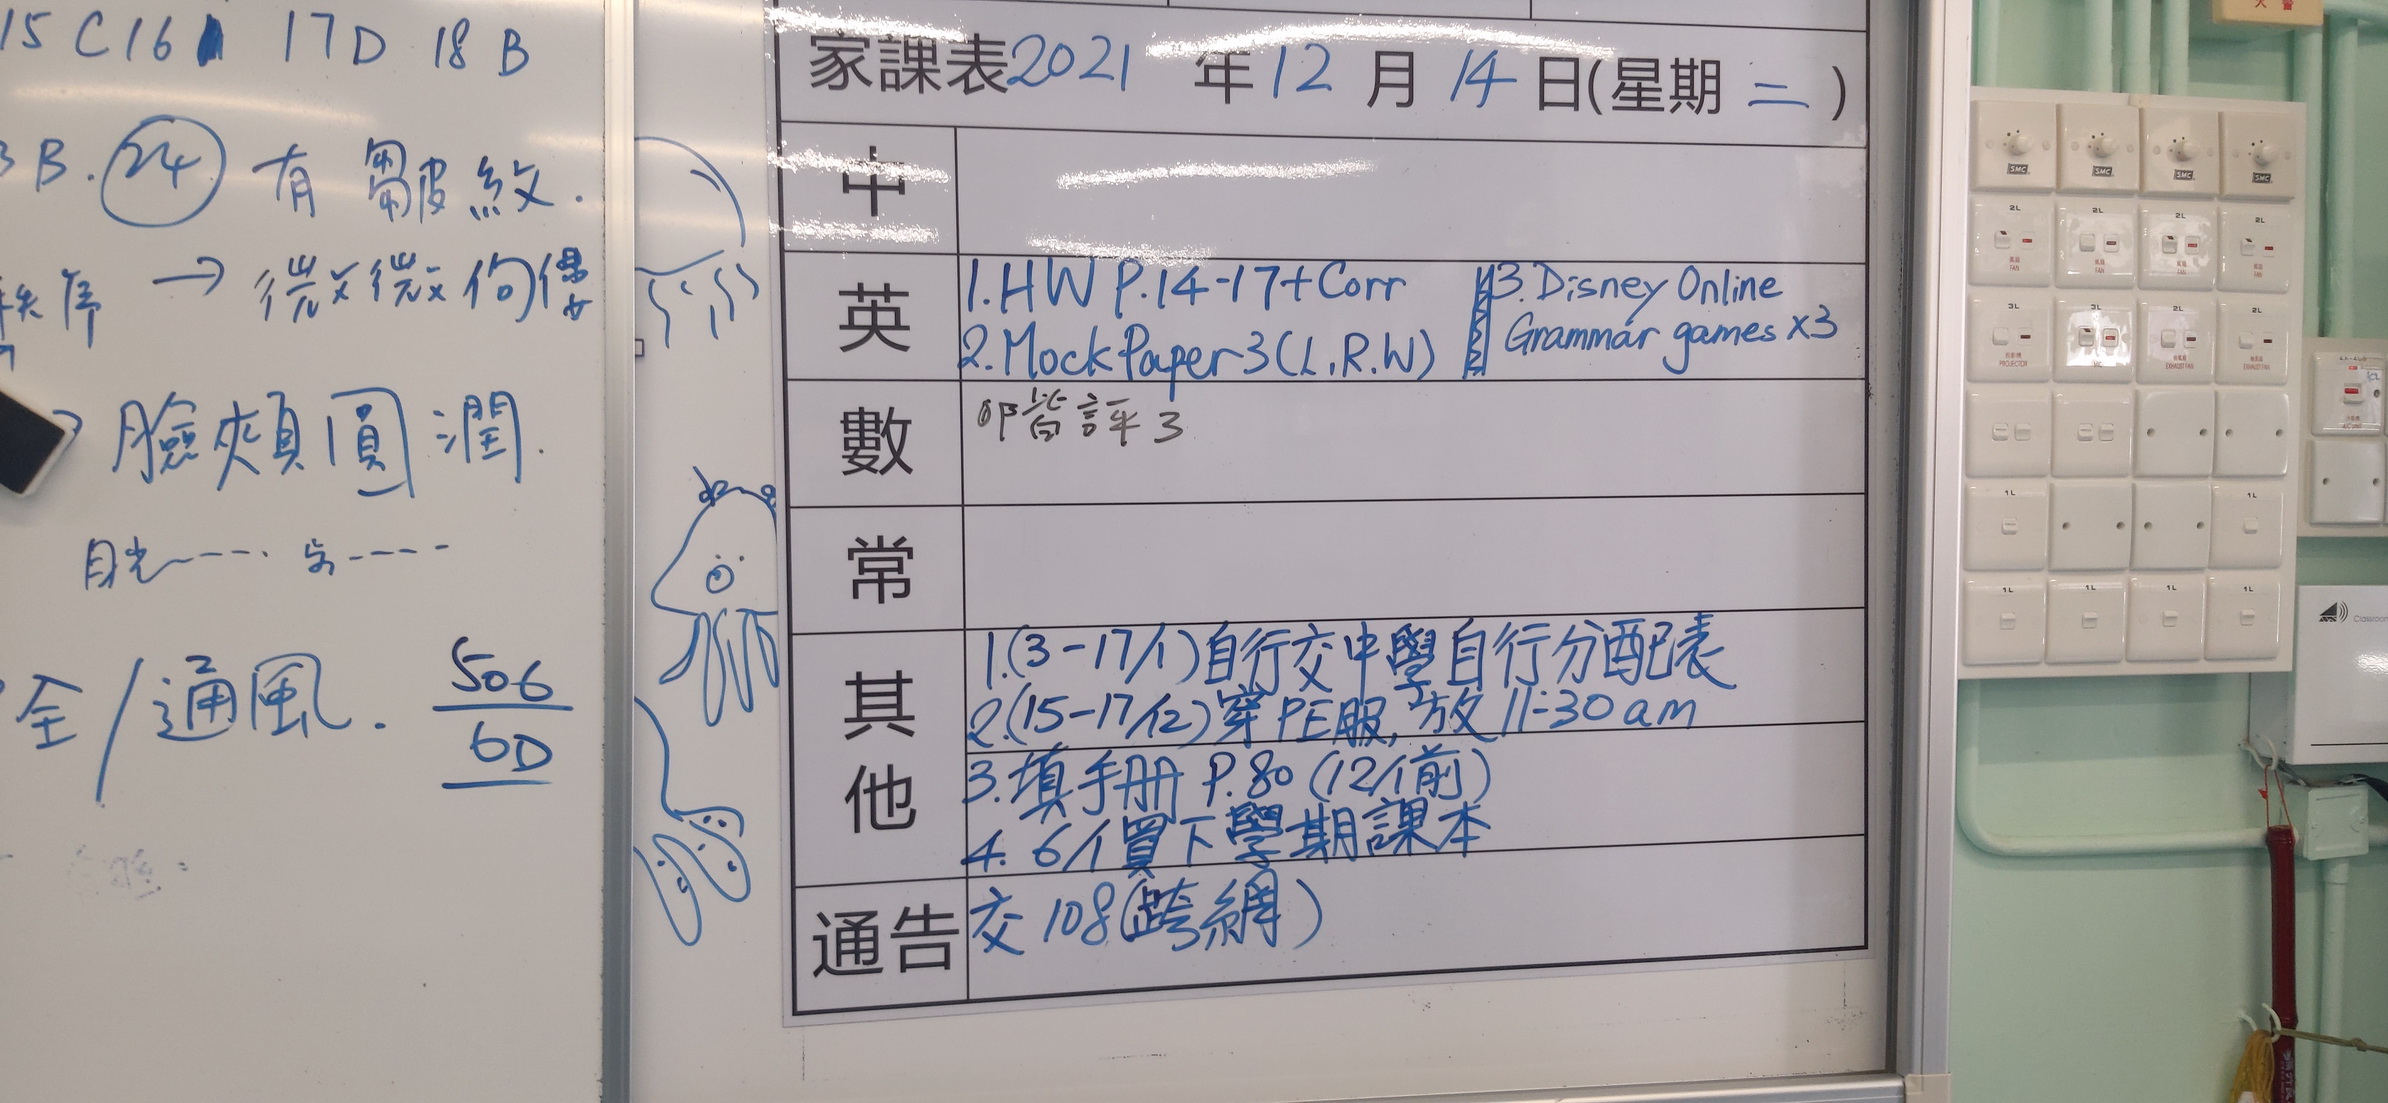 15 C 16 17 D 18 B
B. 24 有皺紋.
→ 微微佝僂
臉頰圓潤.
全/通風.
506
6D
家課表2021年12月14日(星期二)
中
英
1.HW P.14-17+Corr
2.Mock Paper 3 (L.R.W)
3.Disney Online
Grammar games x3
數
階評3
常
其他
1.(3-17/1)自行交中學自行分配表
2.(15-17/12)穿PE服,放11:30am
3.填手冊 P.80 (12/1前)
4. 6/1買下學期課本
通告
交108(跨網)
SMC SMC SMC SMC
2L 2L 2L 2L
風扇 FAN
3L 3L 2L 2L
PROJECTOR
EXHAUST FAN
EXHAUST FAN
1L 1L
1L 1L 1L 1L